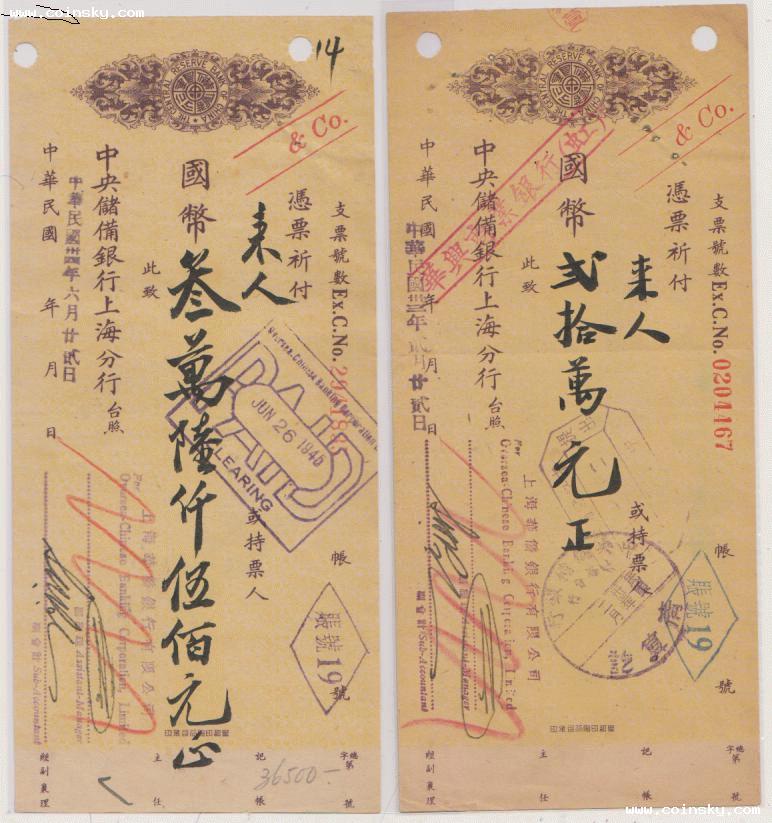 www.coinsky.com
www.coinsky.com
14
THE CENTRAL RESERVE BANK OF CHINA
& Co.
支票號數 Ex.C.No.
憑票祈付
來人
或持票人
帳
號
國幣
叁萬陸仟伍佰元正
此致
中央儲備銀行上海分行 台照
中華民國 年 月 日
中華民國卅四年六月廿貳日
Oversea-Chinese Banking Corporation
PAID
JUN 26 1945
CLEARING
上海華僑銀行有限公司
For
Oversea-Chinese Banking Corporation, Limited
Assistant-Manager
Sub-Accountant
賬號
19
總字第 號
記帳
主任
經副襄理
36500-
THE CENTRAL RESERVE BANK OF CHINA
& Co.
支票號數 Ex.C.No. 0204167
憑票祈付
來人
或持票人
帳
號
國幣
弍拾萬元正
此致
中央儲備銀行上海分行 台照
中華民國 年 月 日
華興商業銀行(虹)
上海華僑銀行有限公司
For
Oversea-Chinese Banking Corporation, Limited
Assistant-Manager
Sub-Accountant
賬號
19
總字第 號
記帳
主任
經副襄理
www.coinsky.com
www.coinsky.com